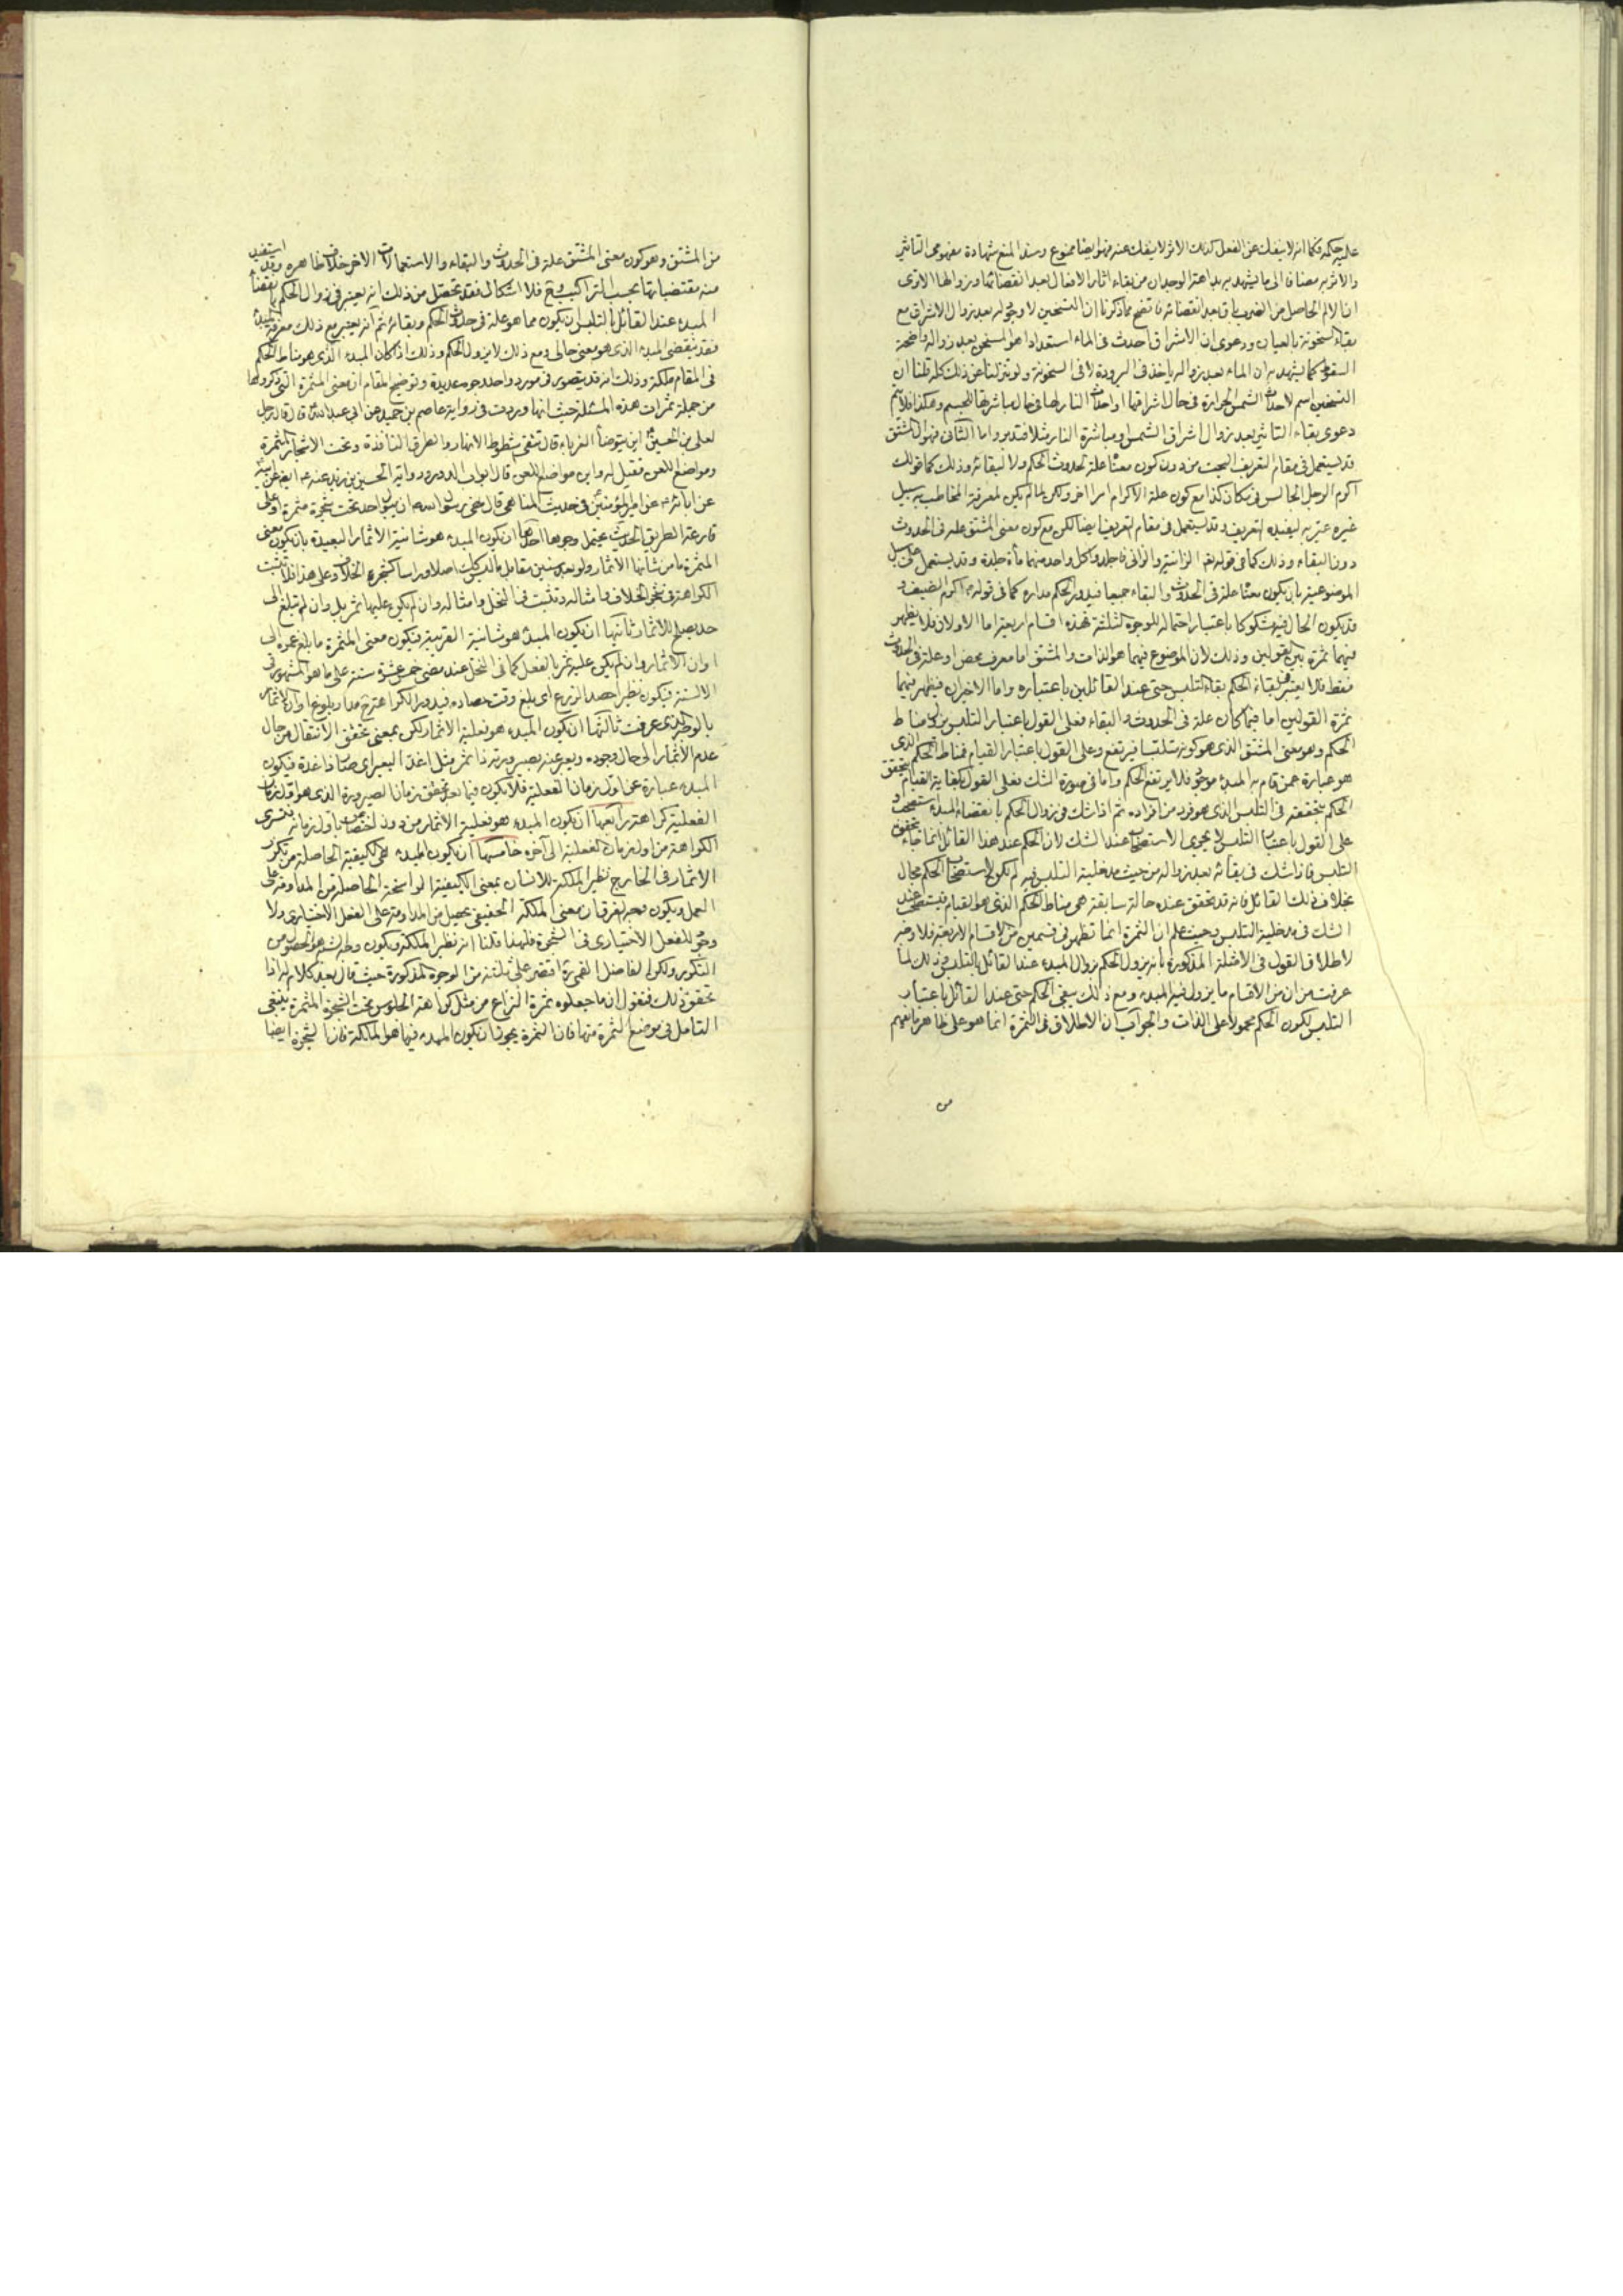 عليه حكمه فكما انه لا ينفك عن الفعل كذلك الاثر لا ينفك عنه فهو ايضا ممنوع وسند المنع شهادة مفهومى التاثير
والاثر به مضافا الى ما يشهد به بداهة الوجدان من بقاء اثار الافعال بعد انقضائها وزوالها الا ترى
ان الالم الحاصل من الضرب باق بعد انقضائه فاتضح مما ذكرنا ان التسخين لا وجود له بعد زوال الاشراق مع
بقاء السخونة بالعيان ودعوى ان الاشراق احدث فى الماء استعدادا هو المسخن بعد زواله واضحة
السقوط كما يشهد به ان الماء بعد زواله ياخذ فى البرودة لا فى السخونة ولو تنزلنا عن ذلك كله قلنا ان
التسخين اسم لاحداث الشمس الحرارة فى حال اشراقها او احداث النار لها فى حال مباشرتها للجسم وهكذا فلا يتم
دعوى بقاء التاثير بعد زوال اشراق الشمس ومباشرة النار مثلا فتدبر واما الثانى فهو ان المشتق
قد يستعمل فى مقام التعريف البحت من دون كون معناه علة لحدوث الحكم ولا لبقائه وذلك كما فى قولك
اكرم الرجل الجالس فى مكان كذا مع كون علة الاكرام امرا اخر ولكن لما لم يكن لمعرفة المخاطب به سبيل
غيره عبر به ليفيده التعريف وقد يستعمل فى مقام التعريف ايضا لكن مع كون معنى المشتق علة فى الحدوث
دون البقاء وذلك كما فى قوله تعالى الزانية والزانى فاجلدوا كل واحد منهما مأة جلدة وقد يستعمل على سبيل
الموضوعية بان يكون معناه علة فى الحدوث والبقاء جميعا فيدور الحكم مداره كما فى قوله اكرم الضيف و
قد يكون الحال فيه مشكوكا باعتبار احتماله للوجوه الثلثة فهذه اقسام اربعة اما الاولان فلا يظهر
فيهما ثمرة بين القولين وذلك لان الموضوع فيهما هو الذات والمشتق اما معرف محض او علة فى الحدوث
فقط فلا يعتبر فى بقاء الحكم بقاء التلبس حتى عند القائلين باعتباره واما الاخيران فيظهر فيهما
ثمرة القولين اما فيما كان علة فى الحدوث والبقاء فعلى القول باعتبار التلبس يزول مناط
الحكم وهو معنى المشتق الذى هو كونه متلبسا فيرتفع وعلى القول باعتبار القيام فمناط الحكم الذى
هو عبارة عمن قام به المبدء موجود فلا يرتفع الحكم واما فى صورة الشك فعلى القول بكفاية القيام يتحقق
الحكم بتحققه فى التلبس الذى هو فرد من افراده ثم اذا شك فى زوال الحكم بانقضاء المبدء يستصحب و
على القول باعتبار التلبس لا يجرى الاستصحاب عند الشك لان الحكم عند هذا القائل انما جاء بتحقق
التلبس فاذا شك فى بقائه بعد زواله من حيث مدخلية التلبس فيه لم يكن لاستصحاب الحكم مجال
بخلاف ذلك القائل فانه قد تحقق عنده حالة سابقة هى مناط الحكم الذى هو القيام فيستصحب عند
الشك فى مدخلية التلبس وحيث علم ان الثمرة انما تظهر فى قسمين من الاقسام الاربعة فلا وجه
لاطلاق القول فى الامثلة المذكورة بانه يزول الحكم بزوال المبدء عند القائل بالتلبس وذلك لما
عرفت من ان من الاقسام ما يزول فيه المبدء ومع ذلك يبقى الحكم حتى عند القائل باعتبار
التلبس لكون الحكم محمولا على الذات والجواب ان الاطلاق فى الثمرة انما هو على ظاهر ما يفهم
من
من المشتق وهو كون معنى المشتق علة فى الحدوث والبقاء والاستعمالات الاخر خلاف ظاهره وقد استفيد
منه مقتضياتها بحسب التراكيب فلا اشكال فقد تحصل من ذلك انه يعتبر فى زوال الحكم بانقضاء
المبدء عند القائل بالتلبس ان يكون مما هو علة فى حدوث الحكم وبقائه ثم انه يعتبر مع ذلك معرفة المبدء
فقد ينقضى المبدء الذى هو معنى حالى ومع ذلك لا يزول الحكم وذلك اذا كان المبدء الذى هو مناط الحكم
فى المقام ملكة وذلك انه قد يتصور فى مورد واحد وجوه عديدة وتوضيح المقام ان معنى المثمرة التى ذكروها
من جملة ثمرات هذه المسئلة حيث انها وردت فى رواية عاصم بن حميد عن ابى عبد الله قال قال رجل
لعلى بن الحسين اين يتوضأ الغرباء قال تتقى شطوط الانهار والطرق النافذة وتحت الاشجار المثمرة
ومواضع اللعن فقيل له واين مواضع اللعن قال ابواب الدور ورواية الحسين بن زيد عنه عن ابيه
عن ابائه عن امير المؤمنين فى حديث المناهى قال نهى رسول الله ان يبول احد تحت شجرة مثمرة او على
قارعة الطريق الحديث يحتمل وجوها احدها ان يكون المبدء هو شانية الاثمار البعيدة بان يكون معنى
المثمرة ما من شانها الاثمار ولو بعد سنين مقابل ما ليس كذلك اصلا وراسا كشجرة الخلاف وعلى هذا فلا تثبت
الكراهة فى شجر الخلاف وامثاله وتثبت فى النخل وامثاله وان لم يكن عليها ثمر بل وان لم تبلغ الى
حد يصلح للاثمار ثانيها ان يكون المبدء هو شانية القريبة فيكون معنى المثمرة ما بلغ عمره الى
اوان الاثمار وان لم يكن عليه ثمر بالفعل كما فى النخل عند مضى خمس عشرة سنة على ما هو المشهور فى
الالسنة فيكون نظير احصد الزرع اى بلغ وقت حصاده فيدور الكراهة مدار بلوغ اوان الاثمار
بالوجه الذى عرفت ثالثها ان يكون المبدء هو فعلية الاثمار لكن بمعنى تحقق الانتقال من حال
عدم الاثمار الى حال وجوده ويعبر عنه بصيرورته ذا ثمر مثل اغد البعير اى صار ذا غدة فيكون
المبدء عبارة عن اول زمان الفعلية فلا يكون فيما بعد تحقق زمان الصيرورة الذى هو اول زمان
الفعلية كراهة رابعها ان يكون المبدء هو فعلية الاثمار من دون اختصاص باول زمانه فتسرى
الكراهة من اول زمان الفعلية الى آخره خامسها ان يكون المبدء هى الكيفية الحاصلة من تكرر
الاثمار فى الخارج نظير الملكة للانسان بمعنى الكيفية الراسخة الحاصلة من المداومة على
العمل ويكون وجه الفرق ان معنى الملكة الحقيقى يحصل من المداومة على الفعل الاختيارى ولا
وجود للفعل الاختيارى فى الشجرة فلهذا قلنا انه نظير الملكة ويكون وجه الشبه هو الحصول من
التكرر ولكن الفاضل القمى اقتصر على ثلثة من الوجوه المذكورة حيث قال بعد كلام له اذا
تحقق ذلك فنقول ان ما جعلوه ثمرة النزاع من مثل كراهة الجلوس تحت الشجرة المثمرة ينبغى
التامل فى موضع الثمرة منها فان الثمرة يجوز ان يكون المبدء فيها هو الملكة فان الشجرة ايضا